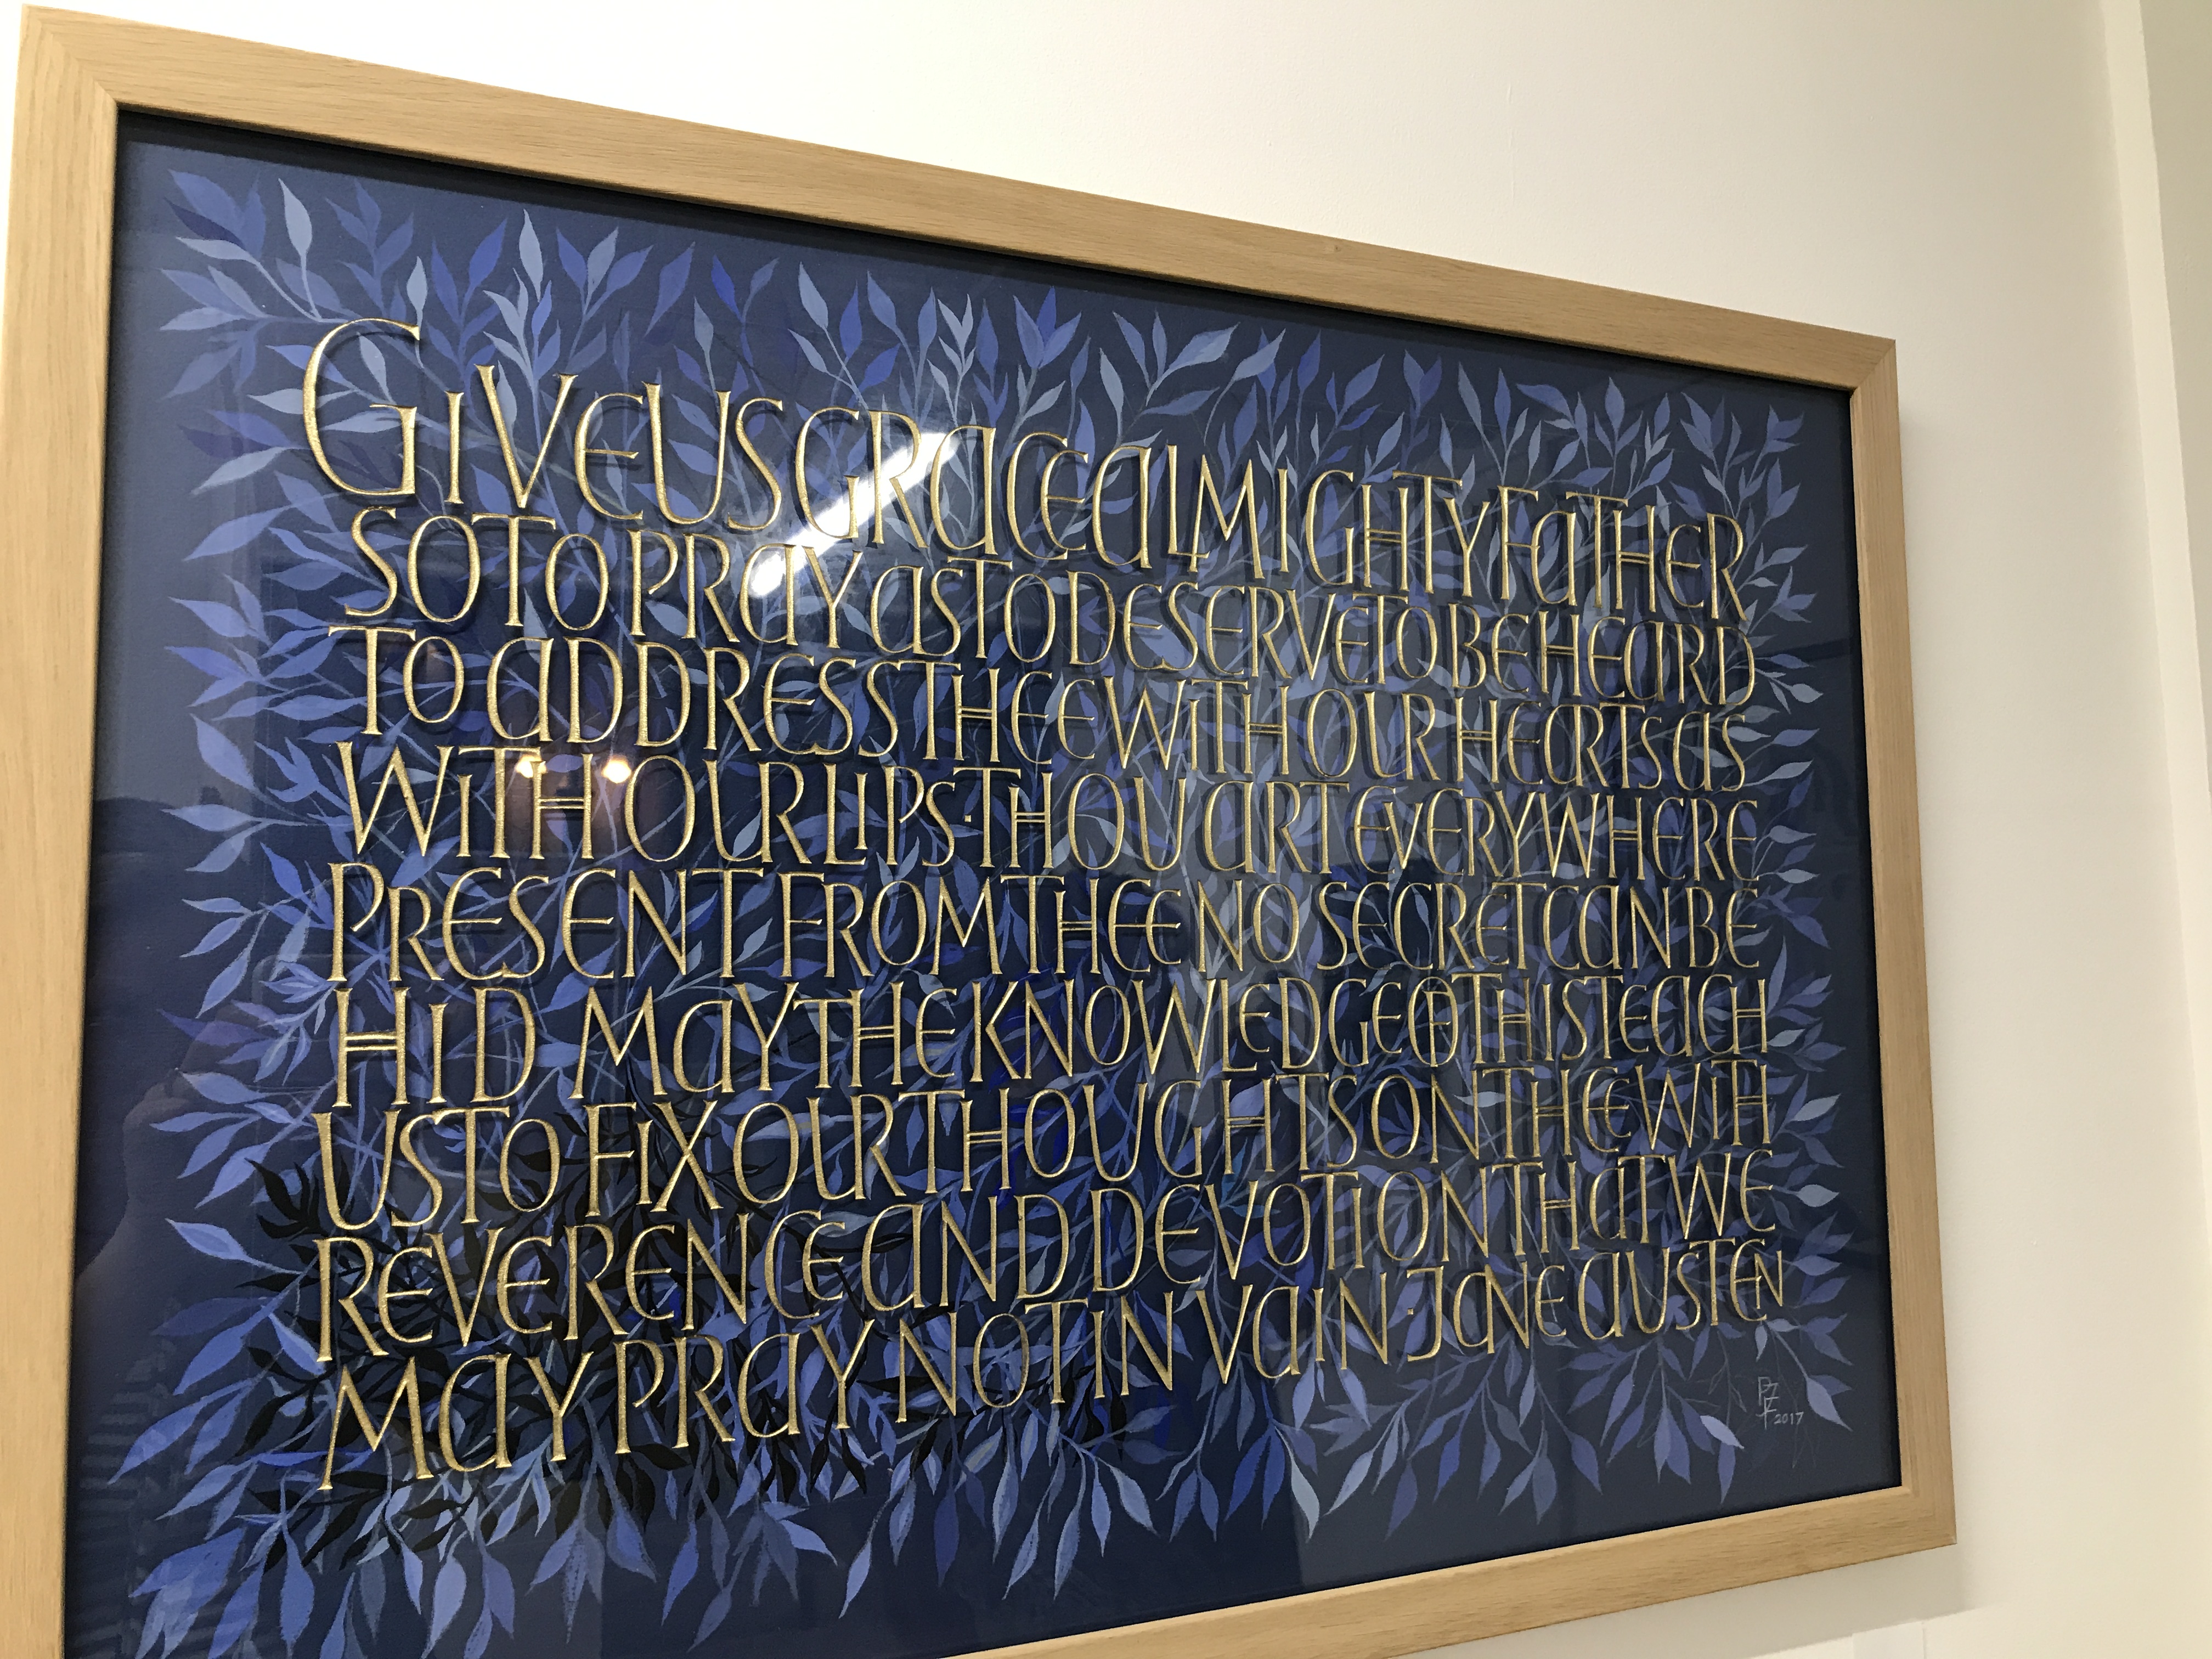 GIVE US GRACE ALMIGHTY FATHER
SO TO PRAY AS TO DESERVE TO BE HEARD
TO ADDRESS THEE WITH OUR HEARTS AS
WITH OUR LIPS · THOU ART EVERYWHERE
PRESENT FROM THEE NO SECRET CAN BE
HID MAY THE KNOWLEDGE OF THIS TEACH
US TO FIX OUR THOUGHTS ON THEE WITH
REVERENCE AND DEVOTION THAT WE
MAY PRAY NOT IN VAIN · JANE AUSTEN
2017